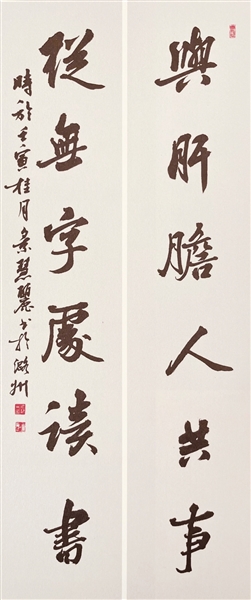 與肝膽人共事
從無字處讀書
時於壬寅桂月朱慧麗書於潞州